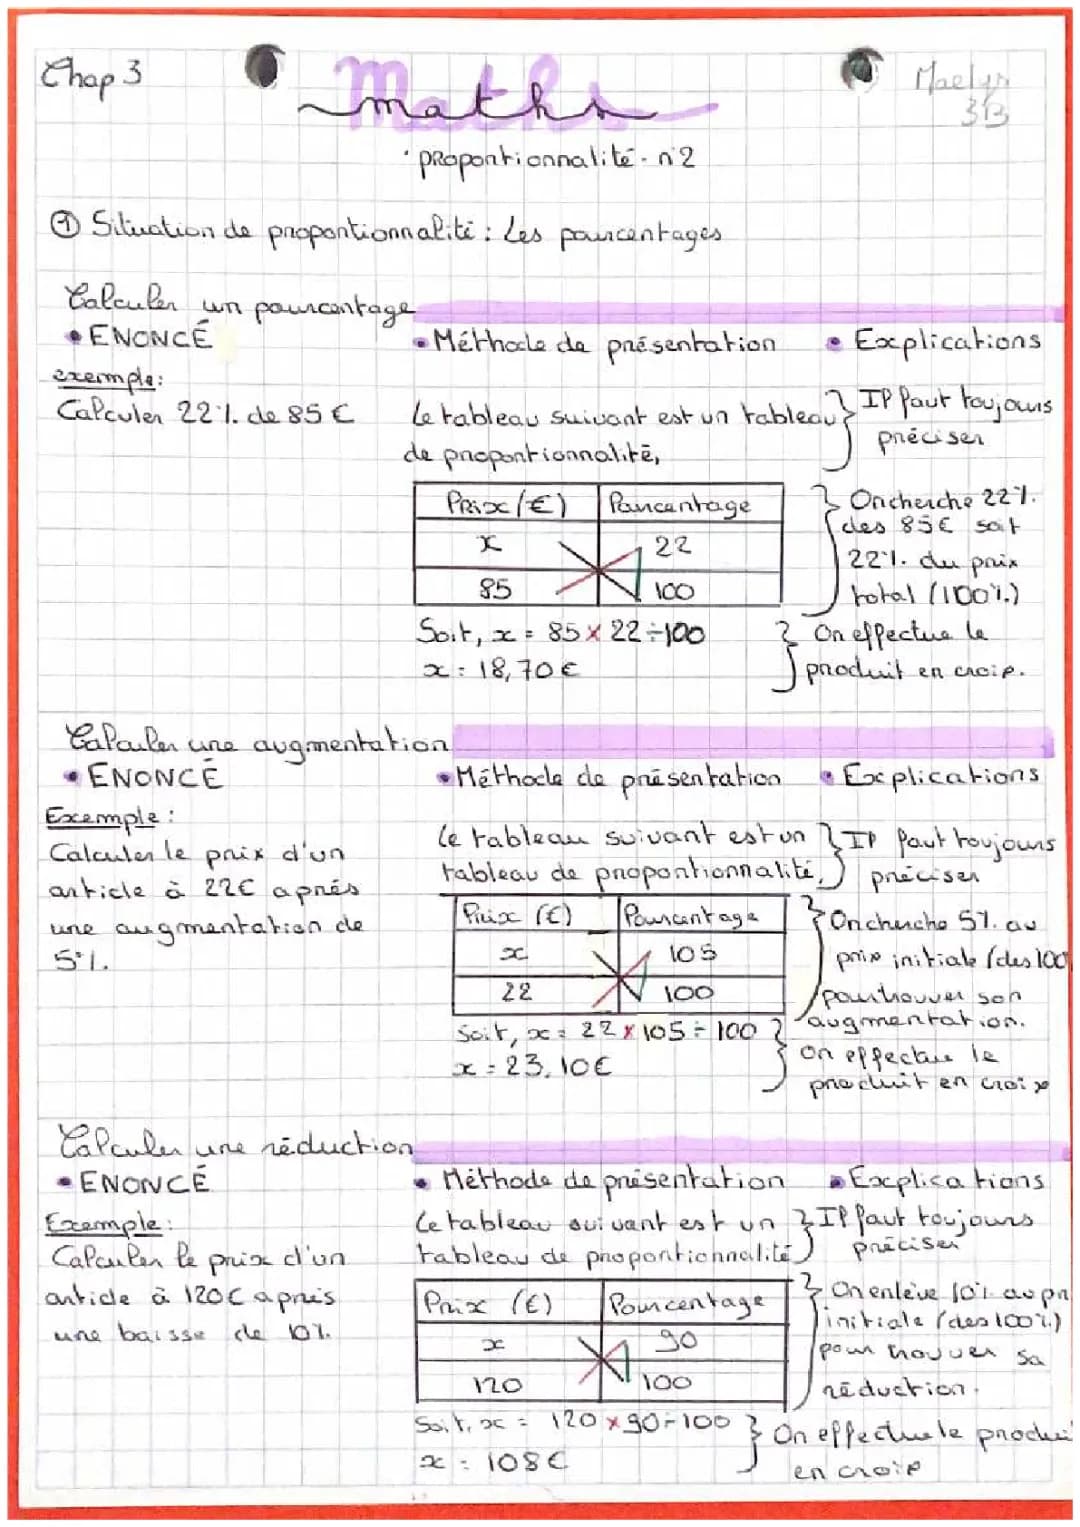 Chap 3
Maths
Maelys
3B
maths
· proportionnalité - n°2
① Situation de proportionnalité : Les pourcentages
Calculer un pourcentage
• ENONCÉ
• Méthode de présentation
• Explications
exemple:
Calculer 22% de 85 €
Le tableau suivant est un tableau
de proportionnalité,
Il faut toujours
préciser
Prix (€) Pourcentage
x 22
85 100
On cherche 22%
des 85€ soit
22% du prix
total (100%)
Soit, x = 85 x 22 ÷ 100
x = 18,70 €
On effectue le
produit en croix.
Calculer une augmentation
• ENONCÉ
• Méthode de présentation
• Explications
Exemple :
Calculer le prix d'un
article à 22€ après
une augmentation de
5%.
Le tableau suivant est un
tableau de proportionnalité,
Il faut toujours
préciser
Prix (€) Pourcentage
x 105
22 100
On cherche 5% au
prix initiale (des 100
pour trouver son
augmentation.
Soit, x = 22 x 105 ÷ 100
x = 23,10€
On effectue le
produit en croix
Calculer une réduction
• ENONCÉ
• Méthode de présentation
• Explications
Exemple:
Calculer le prix d'un
article à 120€ après
une baisse de 10%.
Le tableau suivant est un
tableau de proportionnalité
Il faut toujours
préciser
Prix (€) Pourcentage
x 90
120 100
On enlève 10% au pri
initiale (des 100%)
pour trouver sa
réduction.
Soit, x = 120 x 90 ÷ 100
x = 108€
On effectue le produi
en croix